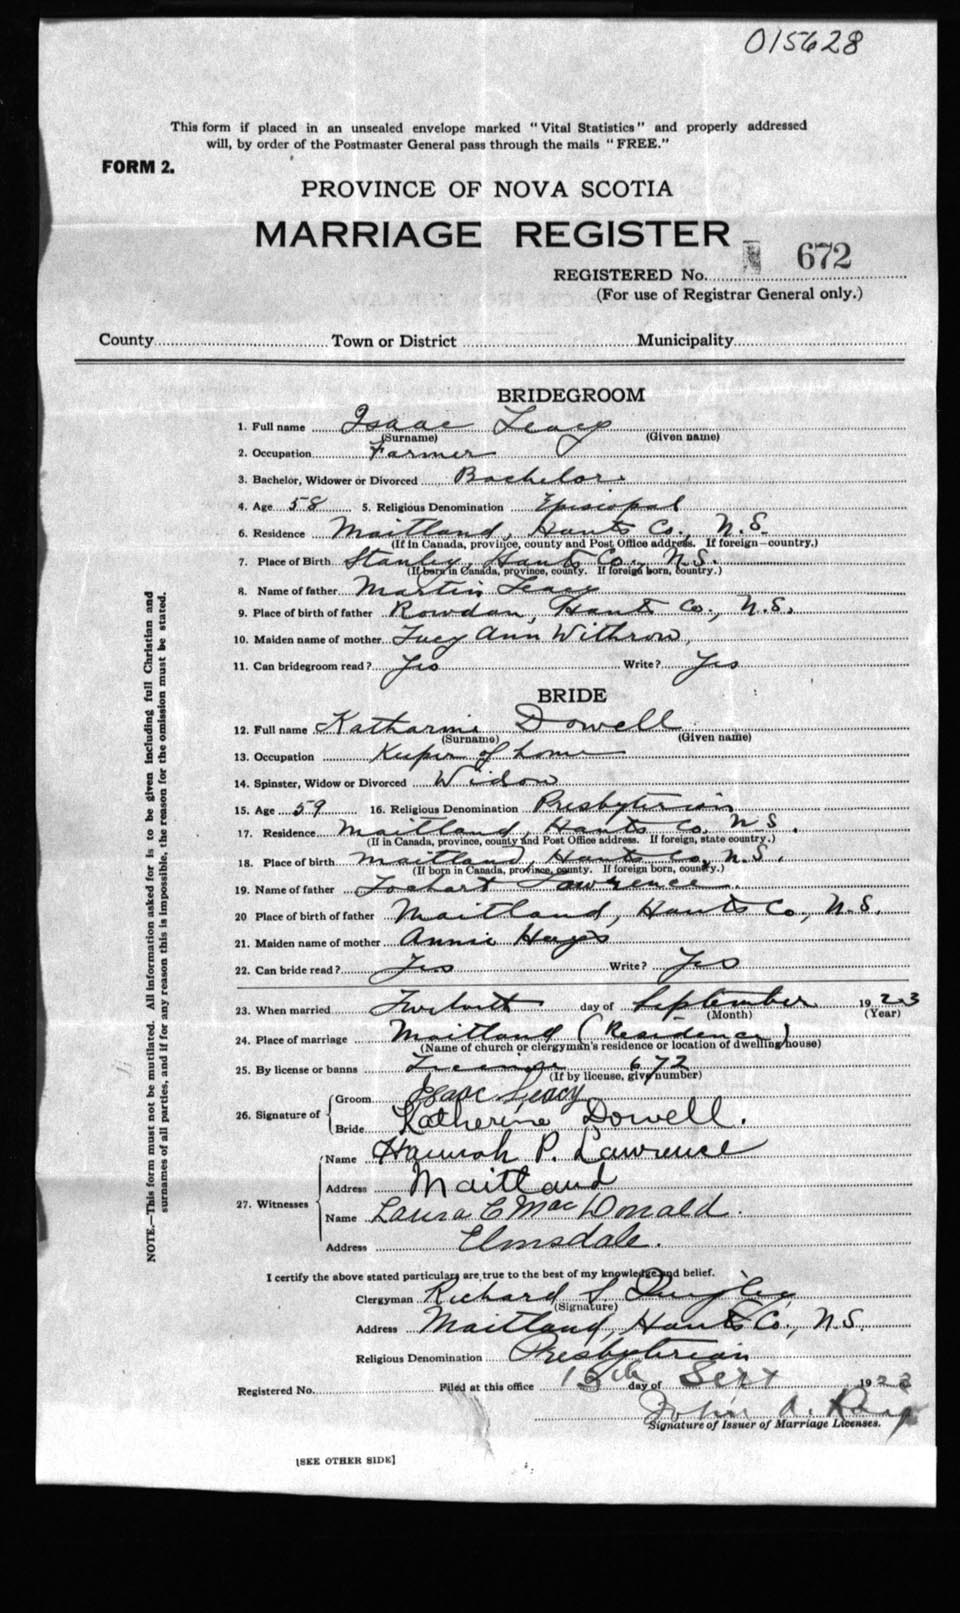 015628
This form if placed in an unsealed envelope marked "Vital Statistics" and properly addressed
will, by order of the Postmaster General pass through the mails "FREE."
FORM 2.
PROVINCE OF NOVA SCOTIA
MARRIAGE REGISTER
REGISTERED No. 672
(For use of Registrar General only.)
County Town or District Municipality
BRIDEGROOM
1. Full name Isaac Leacy
(Surname) (Given name)
2. Occupation Farmer
3. Bachelor, Widower or Divorced Bachelor.
4. Age 58 5. Religious Denomination Episcopal
6. Residence Maitland, Hants Co., N.S.
(If in Canada, province, county and Post Office address. If foreign—country.)
7. Place of Birth Stanley, Hants Co., N.S.
(If born in Canada, province, county. If foreign born, country.)
8. Name of father Martin Leacy
9. Place of birth of father Rawdon, Hants Co., N.S.
10. Maiden name of mother Lucy Ann Withrow,
11. Can bridegroom read? Yes Write? Yes
BRIDE
12. Full name Katharine Dowell
(Surname) (Given name)
13. Occupation Keeper of home
14. Spinster, Widow or Divorced Widow
15. Age 59 16. Religious Denomination Presbyterian
17. Residence Maitland, Hants Co. N.S.
(If in Canada, province, county and Post Office address. If foreign, state country.)
18. Place of birth Maitland, Hants Co., N.S.
(If born in Canada, province, county. If foreign born, country.)
19. Name of father Lawrence.
20 Place of birth of father Maitland, Hants Co., N.S.
21. Maiden name of mother Annie Hays
22. Can bride read? Yes Write? Yes
23. When married Twelvth day of September 1923
(Month) (Year)
24. Place of marriage Maitland (Residence)
(Name of church or clergyman's residence or location of dwelling house)
25. By license or banns License 672
(If by license, give number)
26. Signature of
Groom Isaac Leacy
Bride Katherine Dowell.
27. Witnesses
Name Hannah P. Lawrence
Address Maitland
Name Laura C MacDonald.
Address Elmsdale.
I certify the above stated particulars are true to the best of my knowledge and belief.
Clergyman Richard S.
(Signature)
Address Maitland, Hants Co., N.S.
Religious Denomination Presbyterian
Registered No. Filed at this office day of Sept 1923
John A.
Signature of Issuer of Marriage Licenses.
[SEE OTHER SIDE]
NOTE.—This form must not be mutilated. All information asked for is to be given including full Christian and
surnames of all parties, and if for any reason this is impossible, the reason for the omission must be stated.